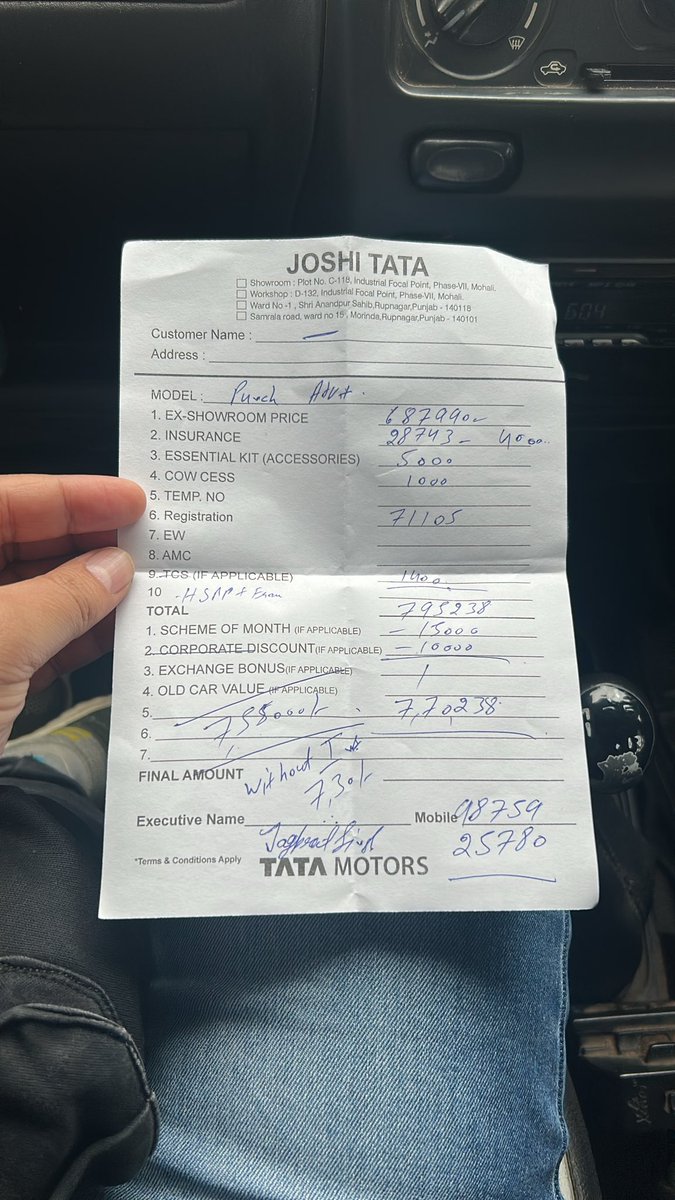 JOSHI TATA
Showroom : Plot No. C-118, Industrial Focal Point, Phase-VII, Mohali.
Workshop : D-132, Industrial Focal Point, Phase-VII, Mohali.
Ward No -1 , Shri Anandpur Sahib,Rupnagar,Punjab - 140118
Samrala road, ward no 15 , Morinda,Rupnagar,Punjab - 140101
Customer Name : —
Address :
MODEL : Punch Advt.
1. EX-SHOWROOM PRICE 687990-
2. INSURANCE 28743- 4000..
3. ESSENTIAL KIT (ACCESSORIES) 5000
4. COW CESS 1000
5. TEMP. NO
6. Registration 71105
7. EW
8. AMC
9. TCS (IF APPLICABLE) 1400
10 . HSRP +
TOTAL 795238
1. SCHEME OF MONTH (IF APPLICABLE) - 15000
2. CORPORATE DISCOUNT(IF APPLICABLE) - 10000
3. EXCHANGE BONUS(IF APPLICABLE)
4. OLD CAR VALUE (IF APPLICABLE)
5. 7,70238.
6.
7.
FINAL AMOUNT Without
7,30
Executive Name Mobile 98759
25780
*Terms & Conditions Apply TATA MOTORS
604